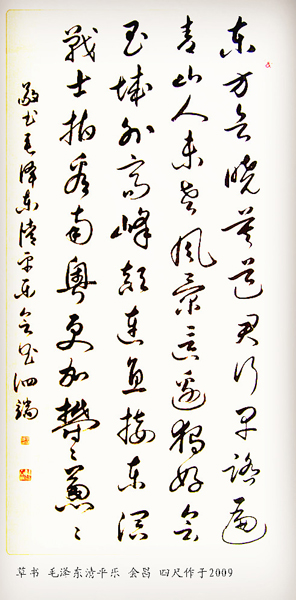 东方欲晓莫道君行早踏遍
青山人未老风景这边独好会
昌城外高峰颠连直接东溟
戰士指看南粤更加鬱々葱々
敬书毛泽东清平乐会昌 泗端
草书 毛泽东清平乐 会昌 四尺作于2009